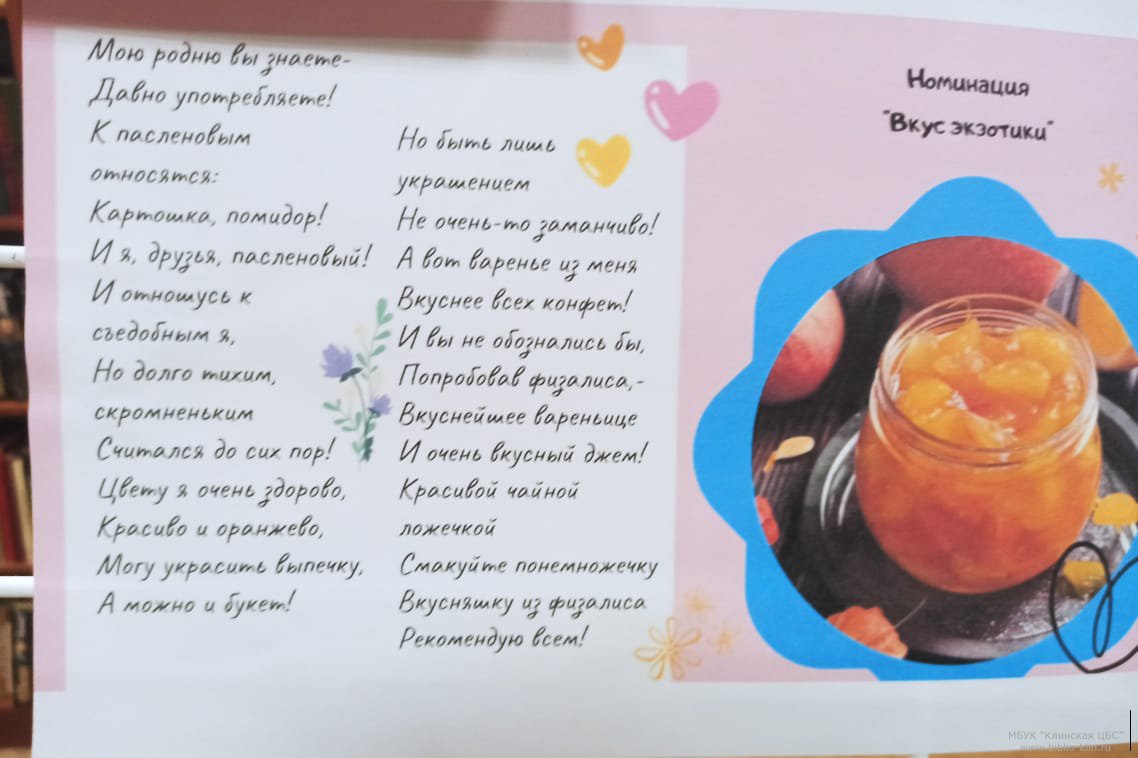 Мою родню вы знаете-
Давно употребляете!
К пасленовым
относятся:
Картошка, помидор!
И я, друзья, пасленовый!
И отношусь к
съедобным я,
Но долго тихим,
скромненьким
Считался до сих пор!
Цвету я очень здорово,
Красиво и оранжево,
Могу украсить выпечку,
А можно и букет!
Но быть лишь
украшением
Не очень-то заманчиво!
А вот варенье из меня
Вкуснее всех конфет!
И вы не обознались бы,
Попробовав физалиса,-
Вкуснейшее вареньице
И очень вкусный джем!
Красивой чайной
ложечкой
Смакуйте понемножечку
Вкусняшку из физалиса
Рекомендую всем!
Номинация
"Вкус экзотики"
МБУК "Клинская ЦБС"
www.biblio-klin.ru